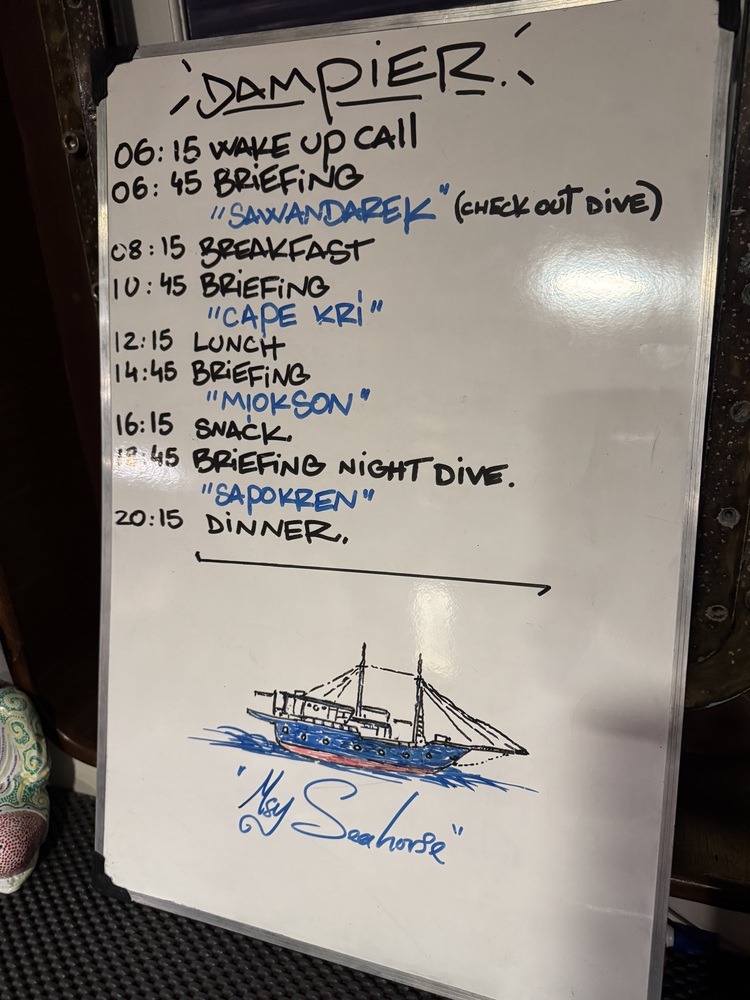 DAMPIER.
06:15 WAKE UP CALL
06:45 BRIEFING
"SAWANDAREK" (CHECK OUT DIVE)
08:15 BREAKFAST
10:45 BRIEFING
"CAPE KRI"
12:15 LUNCH
14:45 BRIEFING
"MIOKSON"
16:15 SNACK.
18:45 BRIEFING NIGHT DIVE.
"SAPOKREN"
20:15 DINNER.
"Msy Seahorse"